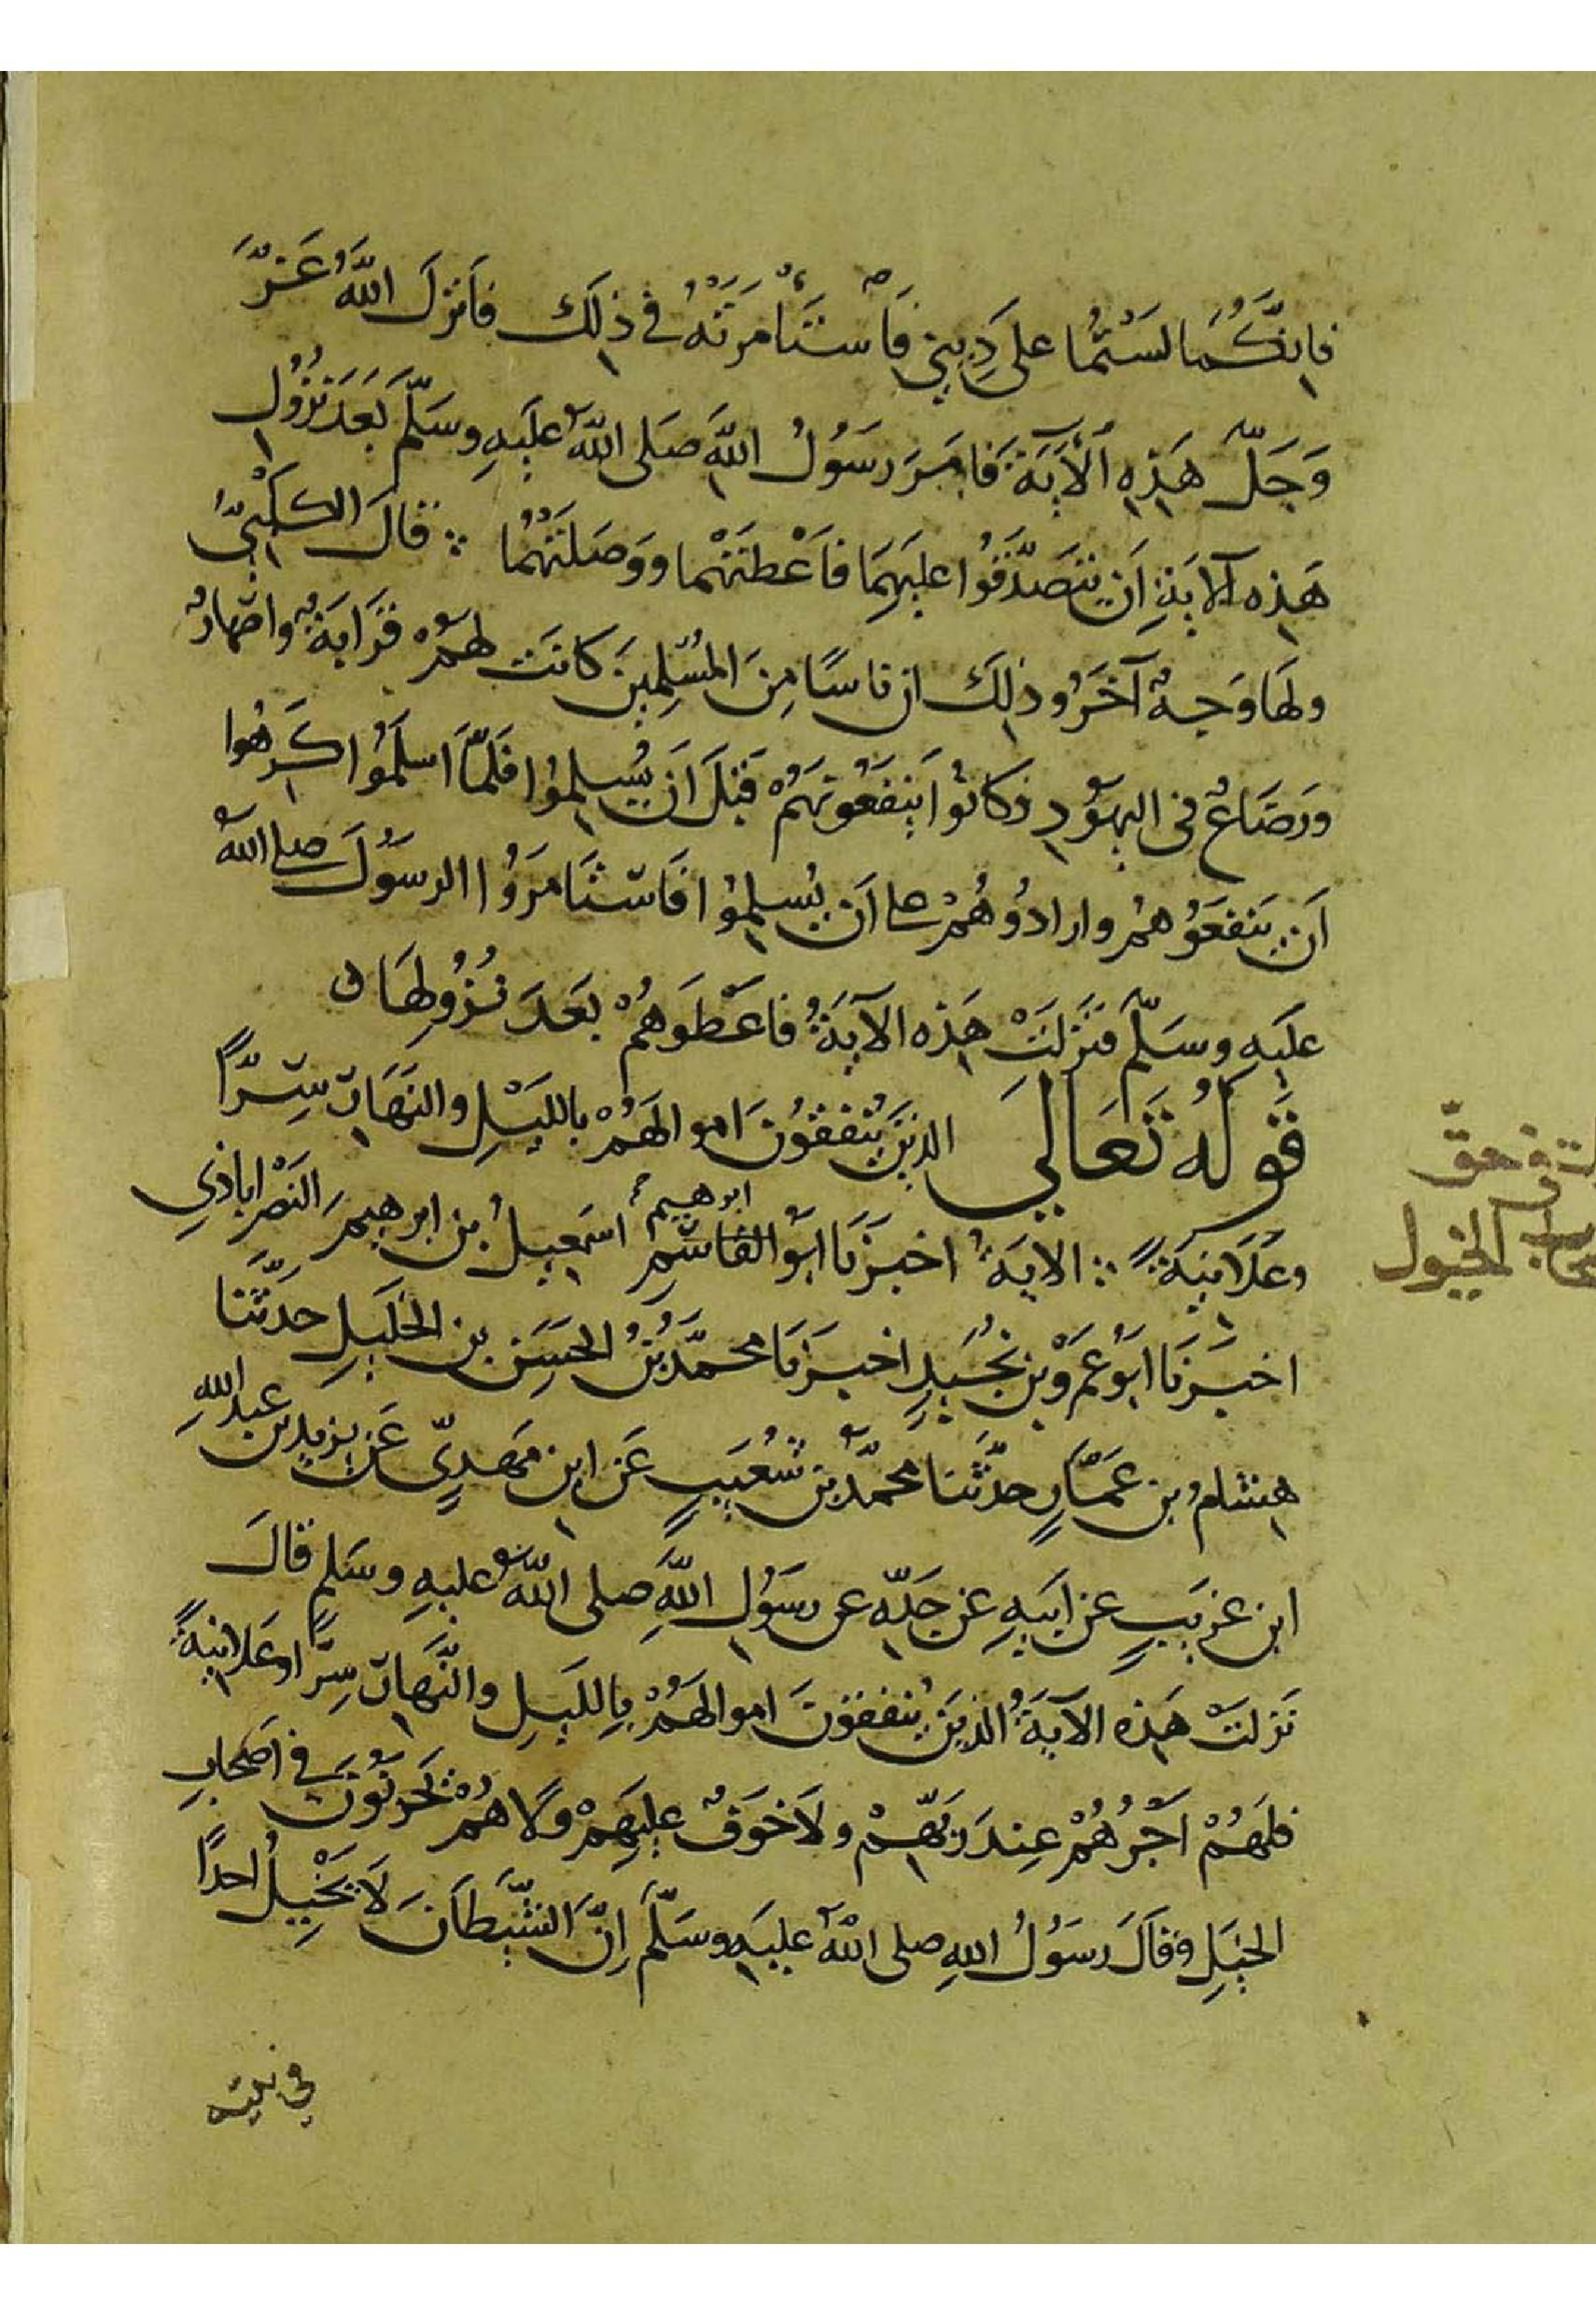 فَإِنَّكُمَا لَسْتُمَا عَلَى دِينِي فَاسْتَأْمَرَتْهُ في ذلِكَ فَأَنْزَلَ اللهُ عَزَّ
وَجَلَّ هَذِهِ الآيَةَ فَأَمَرَ رَسُولُ اللهِ صَلى اللهُ عَلَيهِ وسَلَّمَ بَعدَ نُزُول
هَذِه الآيَةِ أَن تَتَصَدَّقُوا عليهِمَا فَأَعْطتهُما وَوَصَلَتْهُما ∴ قالَ الكلبيُّ
ولهَا وَجهٌ آخَرُ وذلِكَ ان ناسًا مِنَ المُسْلِمِينَ كانَت لهُمْ قَرَابَةٌ واصْهارٌ
ورَضَاعٌ في اليَهُودِ وكانُوا يَنفَعُونَهُمْ قَبْلَ أَن يُسلِمُوا فَلَمّا اسلَمُوا كَرِهُوا
أَن يَنفَعُوهُمْ وارادُوهُمْ على أَن يُسلِمُوا فَاسْتَامَرُوا الرسُولَ صلى الله
عَليهِ وسَلّمَ فَنَزلَتْ هَذه الآيَةُ فاعْطَوهُمْ بعَدَ نُزُولِهَا ن
قَولُهُ تَعَالى الذينَ يُنفقُونَ اموالهُمْ بالليْلِ والنهَارِ سِرًّا
وعَلَانِيَةً ∴ الايَةُ اخبَرَنَا ابُو القاسِمِ ابرهيم اسمعيلُ بن ابرهيمَ النَصْراباذي
اخبَرَنَا ابُو عَمْرو بن نُجَيدٍ اخبَرَنَا محمّدُ بْنُ الحسَنِ بن الخَليلِ حَدَّثَنا
هِشامُ بن عَمَّارٍ حدَّثَنا محمّدُ بن شُعَيبٍ عَن ابن مَهديٍّ عَن يزيد بن عبدِ اللهِ
ابن عَريبٍ عَن ابيهِ عَن جَدّه عن رسُولِ اللهِ صلى اللهُ عليهِ وسَلم قالَ
نَزلَتْ هَذه الآيَةُ الذينَ يُنفقونَ اموالهُمْ بِالليلِ والنَّهَارِ سِرًّا وعَلانيةً
فلهُمْ اَجرُهُمْ عِندَ رَبّهِمْ ولا خَوفٌ عليهِمْ ولا هُمْ يَحزنُونَ في اصحَابِ
الخيلِ وقَالَ رسُولُ اللهِ صلى اللهُ عليهِ وسلَّمَ إِنَّ الشّيطَانَ لا يُخْبِلُ احدًا
في بيته
في حق
الخيول